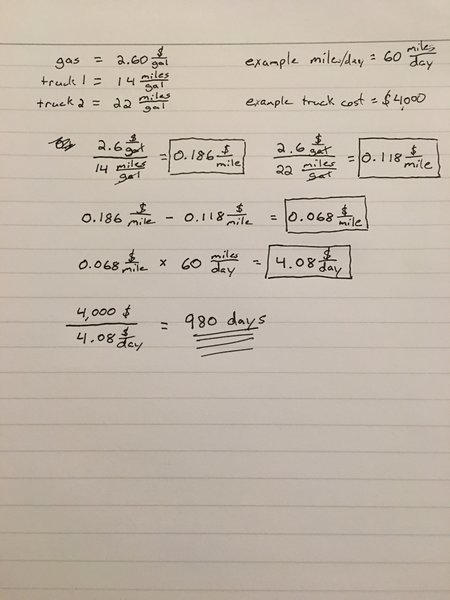 gas = 2.60 $/gal example mile/day = 60 miles/day
truck 1 = 14 miles/gal
truck 2 = 22 miles/gal example truck cost = $4,000
2.6 $/gal / 14 miles/gal = 0.186 $/mile 2.6 $/gal / 22 miles/gal = 0.118 $/mile
0.186 $/mile - 0.118 $/mile = 0.068 $/mile
0.068 $/mile × 60 miles/day = 4.08 $/day
4,000 $ / 4.08 $/day = 980 days